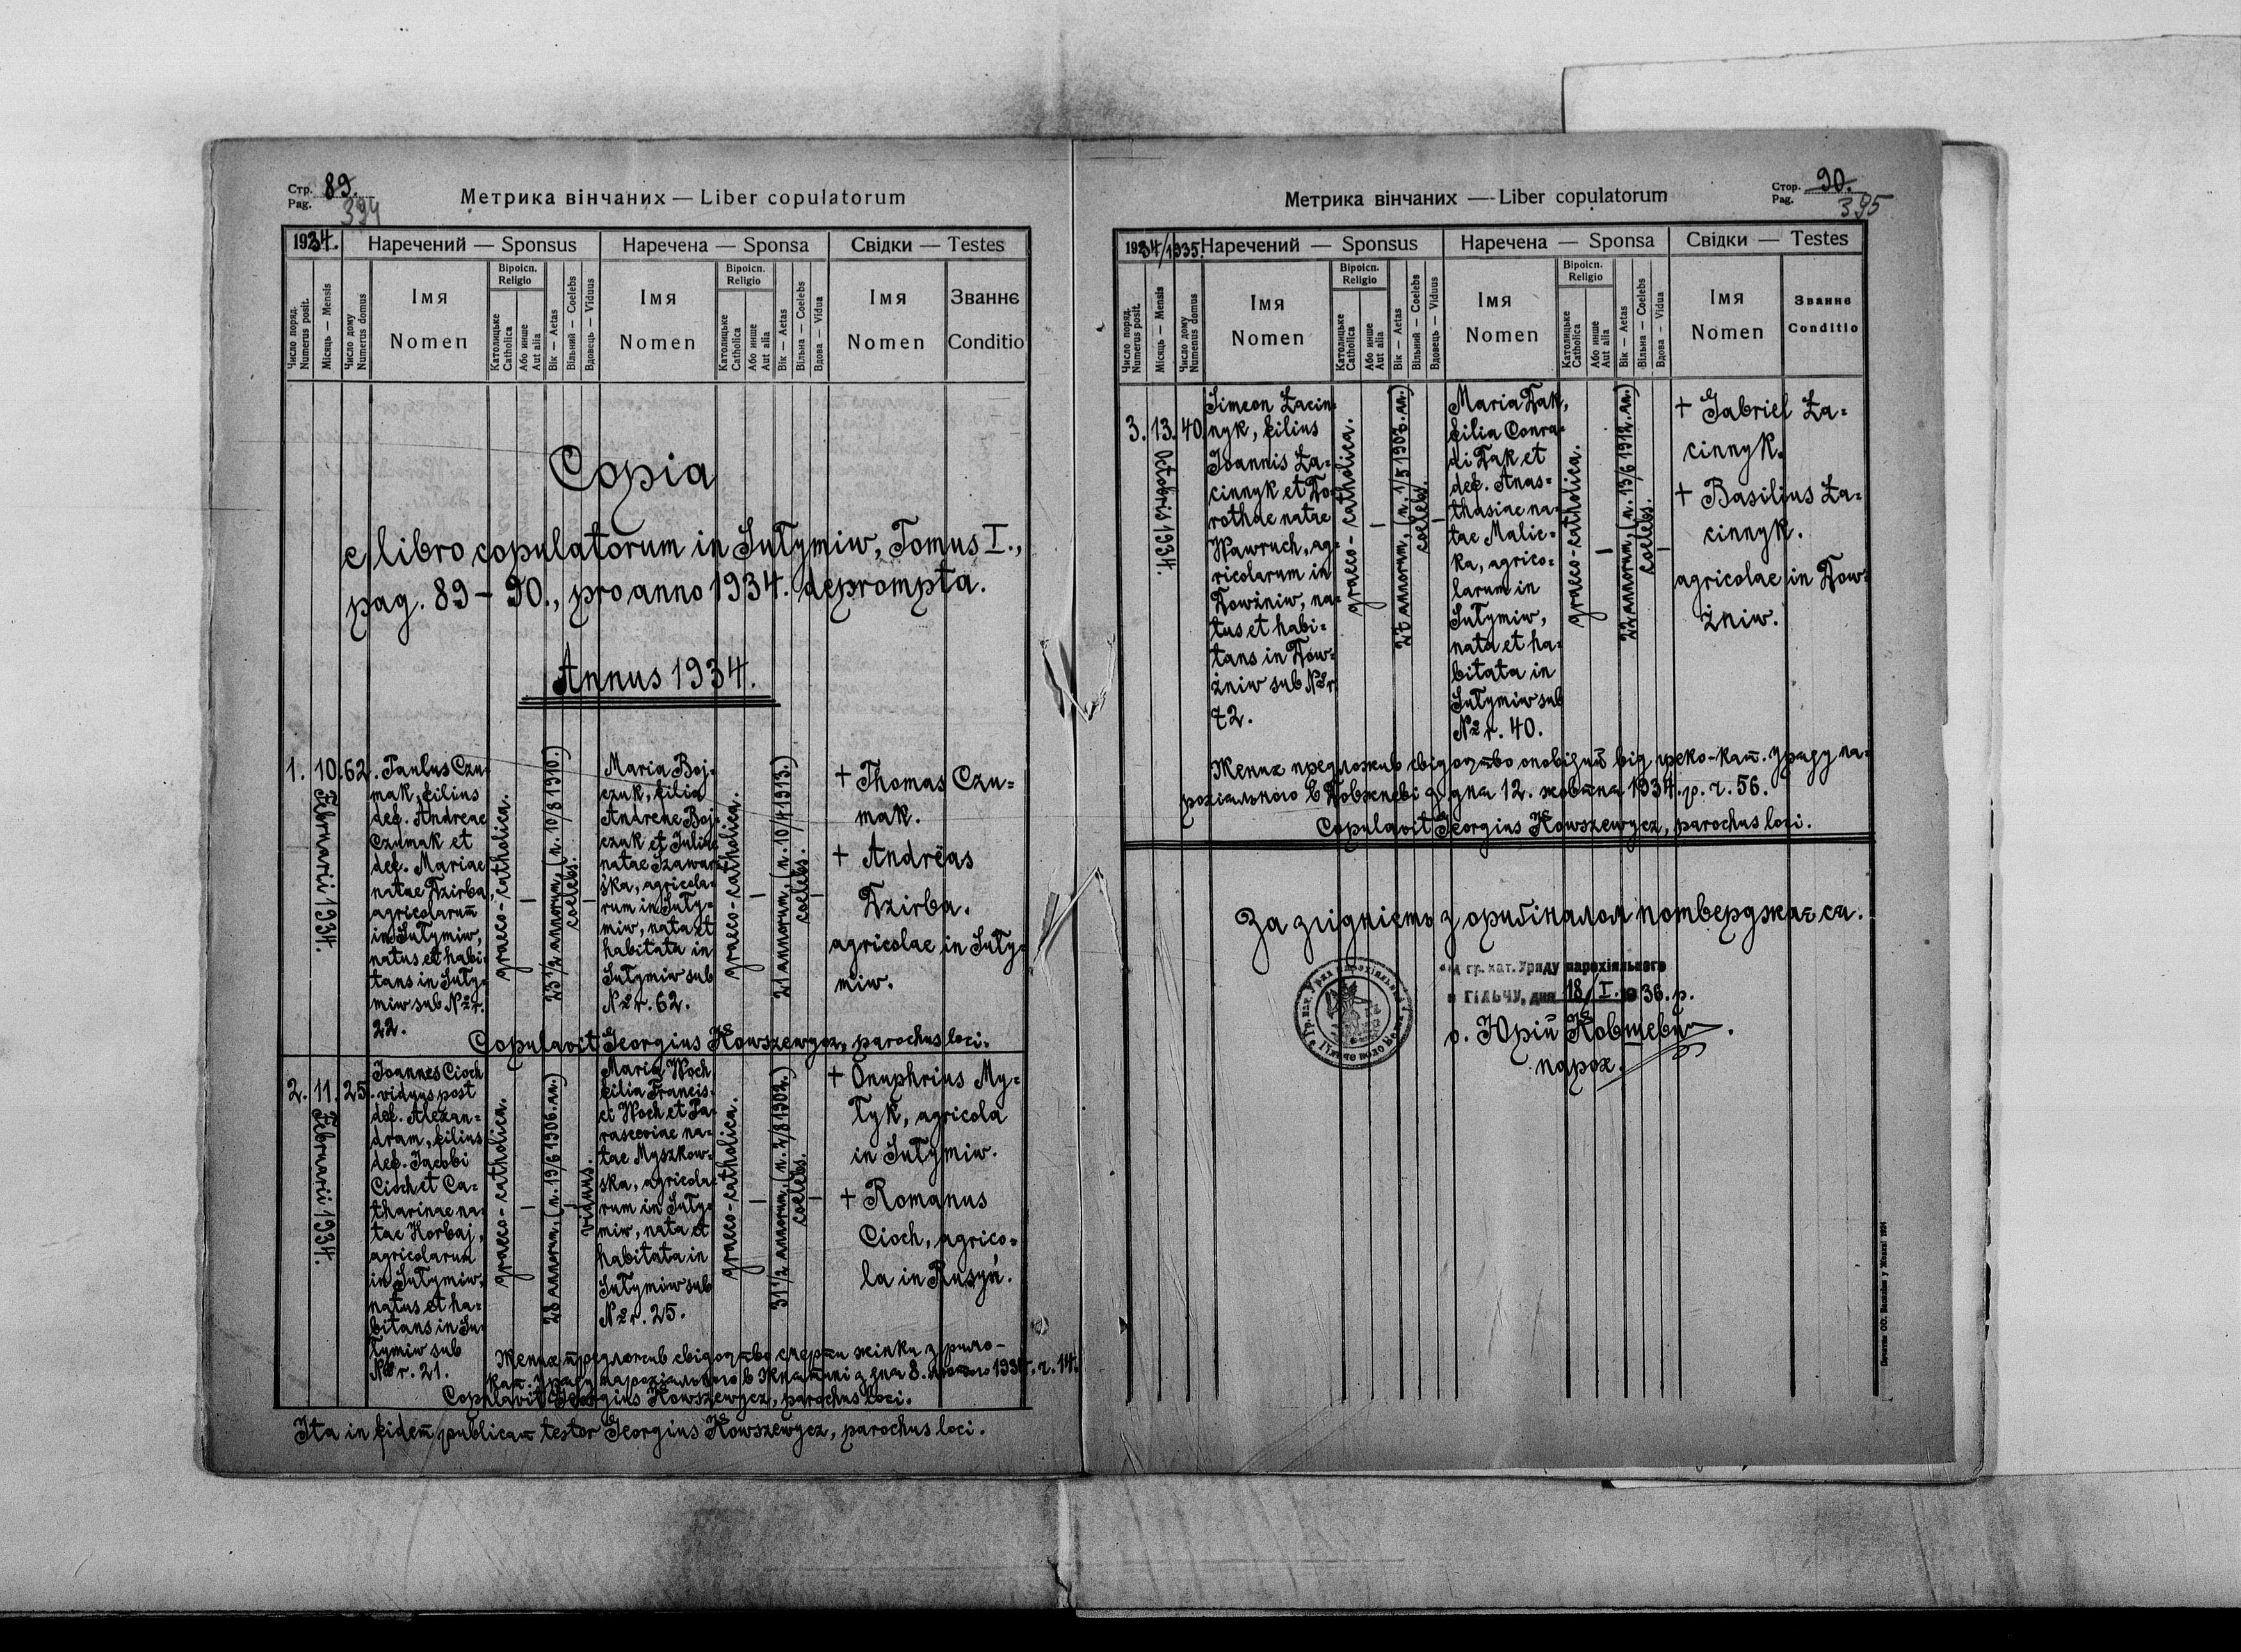 Стр. 89.
Pag. 394
Метрика вінчаних — Liber copulatorum
1934.
Наречений — Sponsus
Наречена — Sponsa
Свідки — Testes
Число поряд.
Numerus posit.
Місяць — Mensis
Число дому
Numerus domus
Імя
Nomen
Віроісп.
Religio
Католицьке
Catholica
Або инше
Aut alia
Вік — Aetas
Вільний — Coelebs
Вдовець — Viduus
Імя
Nomen
Віроісп.
Religio
Католицьке
Catholica
Або инше
Aut alia
Вік — Aetas
Вільна — Coelebs
Вдова — Vidua
Імя
Nomen
Званнє
Conditio
Copia
e libro copulatorum in Sułymiw, Tomus I.,
pag. 89 – 90., pro anno 1934. deprompta.
Annus 1934.
1.
10.
Februarii 1934.
62.
Paulus Czu-
mak, filius
def. Andreae
Czumak et
def. Mariae
natae Dzirba,
agricolarum
in Sułymiw,
natus et habi-
tans in Suły-
miw sub Nr.
22.
graeco-catholica.
—
23 1/2 annorum, (n. 10/8 1910.)
coelebs.
—
Maria Boj-
czuk, filia
Andreae Boj-
czuk et Juliae
natae Szawar-
ska, agricola-
rum in Suły-
miw, nata et
habitata in
Sułymiw sub
Nr. 62.
graeco-catholica.
—
21 annorum, (n. 10/4 1913.)
coelebs.
—
+ Thomas Czu-
mak.
+ Andreas
Dzirba.
agricolae in Suły-
miw.
Copulavit Georgius Kowszewycz, parochus loci.
2.
11.
Februarii 1934.
25.
Joannes Cioch
viduus post
def. Alexan-
dram, filius
def. Jacobi
Cioch et Ca-
tharinae na-
tae Horbaj,
agricolarum
in Sułymiw,
natus et ha-
bitans in Su-
łymiw sub
Nr. 21.
graeco-catholica.
—
28 annorum, (n. 19/6 1906. an.)
viduus.
Maria Woch
filia Francis-
ci Woch et Pa-
rasceviae na-
tae Myszkow-
ska, agricola-
rum in Suły-
miw, nata et
habitata in
Sułymiw sub
Nr. 25.
graeco-catholica.
—
31 1/2 annorum, (n. 2/8 1902.)
coelebs.
—
+ Onuphrius My-
łyk, agricola
in Sułymiw.
+ Romanus
Cioch, agrico-
la in Rusyn.
Жених предложив свідоцтво смерти жінки з римо-
кат. Уряду парохіяльного в з дня 8. лютого 1934. ч. 14.
Copulavit Georgius Kowszewycz, parochus loci.
Ita in fidem publicam testor Georgius Kowszewycz, parochus loci.
Стор. 90.
Pag. 395
Метрика вінчаних — Liber copulatorum
1934/1935.
Наречений — Sponsus
Наречена — Sponsa
Свідки — Testes
Число поряд.
Numerus posit.
Місяць — Mensis
Число дому
Numerus domus
Імя
Nomen
Віроісп.
Religio
Католицьке
Catholica
Або инше
Aut alia
Вік — Aetas
Вільний — Coelebs
Вдовець — Viduus
Імя
Nomen
Віроісп.
Religio
Католицьке
Catholica
Або инше
Aut alia
Вік — Aetas
Вільна — Coelebs
Вдова — Vidua
Імя
Nomen
Званнє
Conditio
3.
13.
Octobris 1934.
40.
Simeon Łacin-
nyk, filius
Joannis Ła-
cinnyk et Do-
rothae natae
Wawruch, ag-
ricolarum in
Dowżniw, na-
tus et habi-
tans in Dow-
żniw sub Nr.
72.
graeco-catholica.
—
27 annorum, (n. 1/5 1907. an.)
coelebs.
—
Maria Dak,
filia Conra-
di Dak et
def. Anas-
thasiae na-
tae Malic-
ka, agrico-
larum in
Sułymiw,
nata et ha-
bitata in
Sułymiw sub
Nr. 40.
graeco-catholica.
—
22 annorum, (n. 13/6 1912. an.)
coelebs.
—
+ Gabriel Ła-
cinnyk.
+ Basilius Ła-
cinnyk.
agricolae in Dow-
żniw.
Жених предложив свідоцтво оповідий від греко-кат. Уряду па-
рохіяльного в Довжневі з дня 12. жовтня 1934. р. ч. 56.
Copulavit Georgius Kowszewycz, parochus loci.
За згідність з оригіналом потверджаєся.
гр. кат. Уряду парохіяльного
Гільчу, дня 18/I. 1936. р.
о. Юрій Ковшевич.
парох.